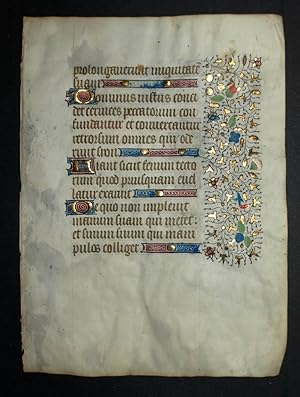 prolongaverunt iniquitatem
suam
Dominus iustus conci
det cervices peccatorum con
fundantur et convertantur
retrorsum omnes qui ode
runt syon
Fiant sicut fenum tecto
rum quod priusquam evel
latur exaruit
De quo non implevit
manum suam qui metet:
et sinum suum qui mani
pulos colliget